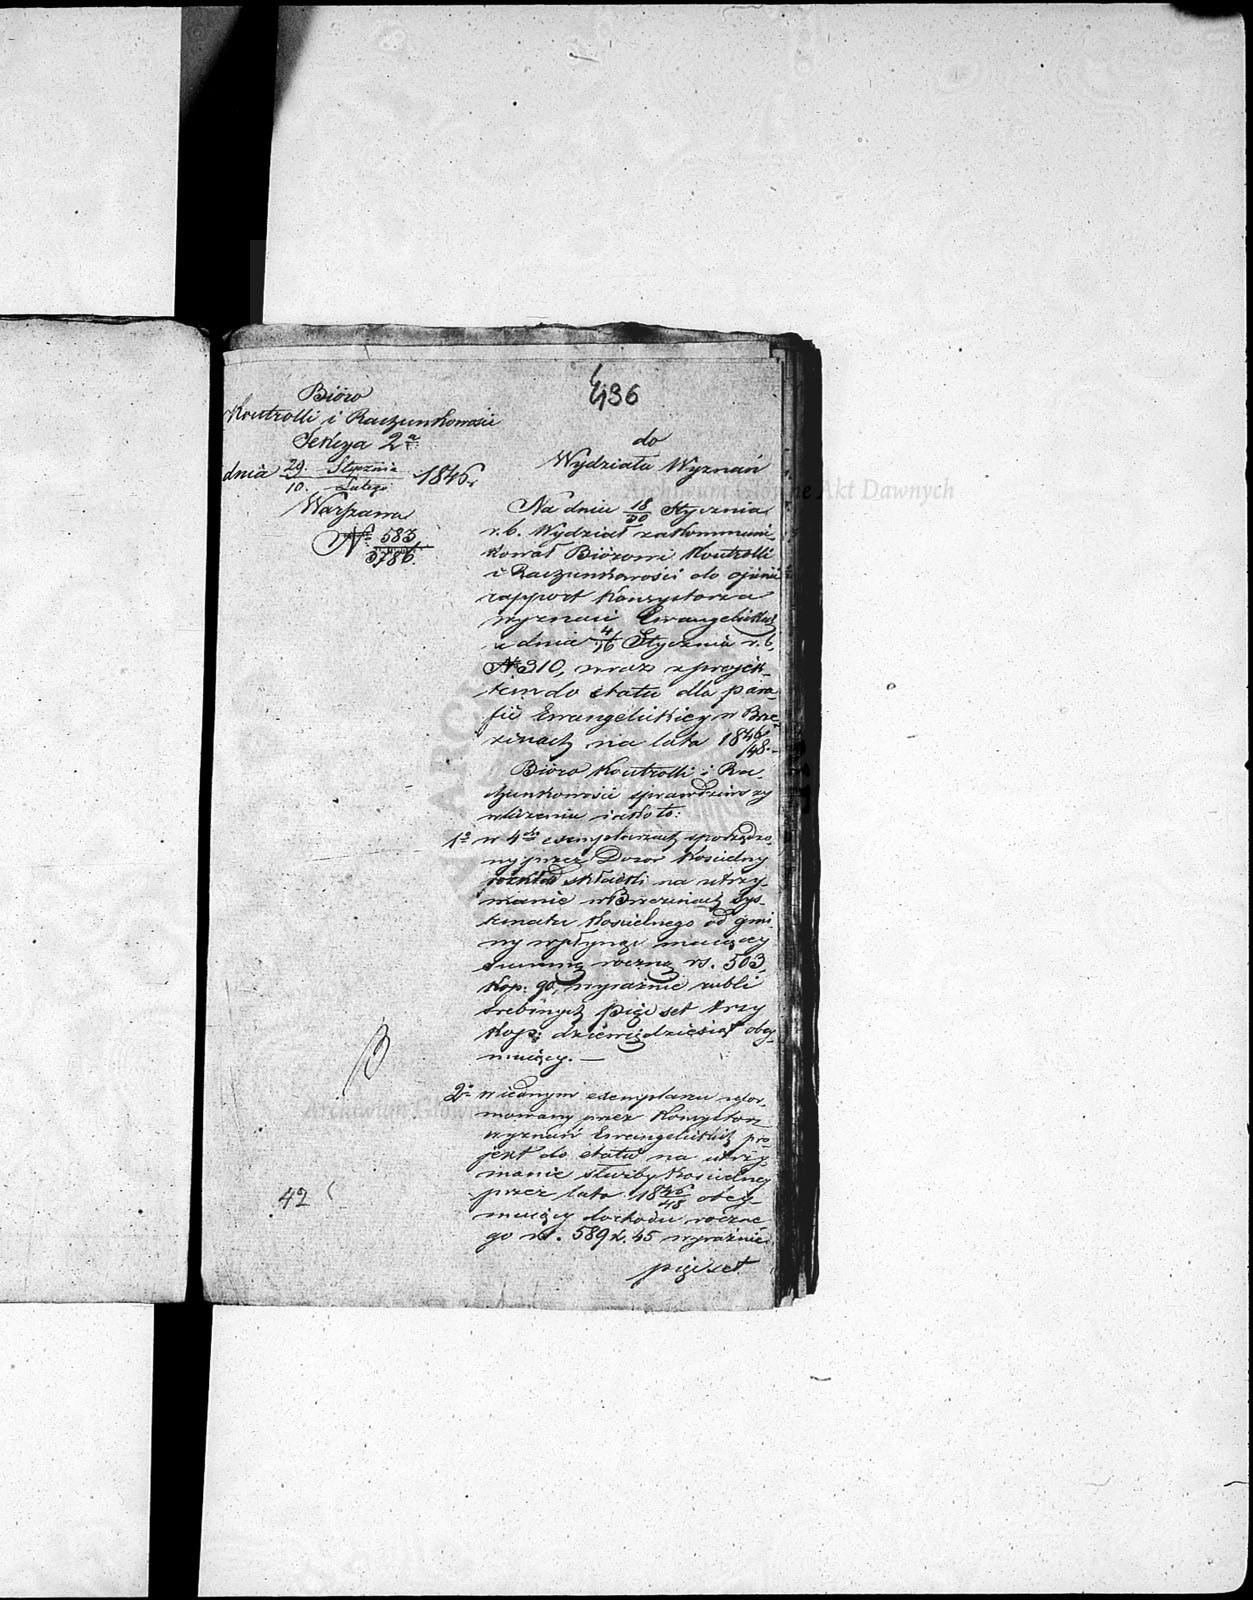 436
Bióro
Kontrolli i Rachunkowości
Sekcya 2a
dnia 29. Stycznia / 10. Lutego 1846 r.
Warszawa
№ 583 / 3786.
do
Wydziału Wyznań
Archiwum Główne Akt Dawnych
Na dniu 18/30 Stycznia
r.b. Wydział zakommuni-
kował Biórowi Kontrolli
i Rachunkowości do opinii
rapport Konsystorza
wyznań Ewangelickich
z dnia 4/16 Stycznia r.b.
№ 310, wraz z projek-
tem do etatu dla para-
fii Ewangelickiey w Brze-
zinach na lata 1846/48.
Bióro Kontrolli i Ra-
chunkowości sprawdziwszy
obliczenia jako to:
1o w 4ch exemplarzach sporządzo-
ny przez Dozór Kościelny
rozkład składki na utrzy-
manie w Brzezinach
Kościelnego od gmi-
ny wpłynąć maiący
summę roczną rs. 503,
kop: 90, wyraźnie rubli
srebrnych pięć set trzy
kop: dziewięćdziesiąt obey-
muiący. —
2o w iednym exemplarzu ufor-
mowany przez Konsystorz
wyznań Ewangelickich pro-
jekt do etatu na utrzy-
manie służby Kościelney
przez lata 1846/48 obey-
muiący dochodu roczne-
go rs. 589 k. 45 wyraźnie
pięć set
Archiwum Główne
42